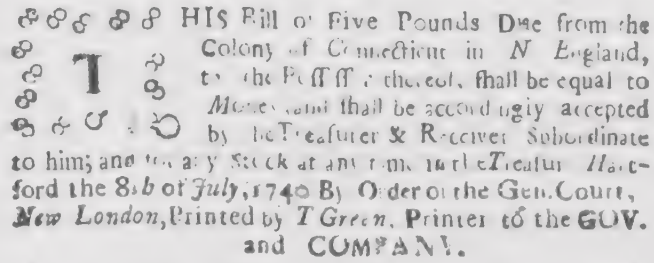 THIS Bill of Five Pounds Due from the
Colony of Connecticut in N England,
to the Poſſeſſor thereof, ſhall be equal to
Money and ſhall be accordingly accepted
by the Treaſurer & Receiver Subordinate
to him; and for any Stock at any time in the Treaſury Hart-
ford the 8th of July, 1740 By Order of the Gen. Court,
New London, Printed by T Green, Printer to the GOV.
and COMPANY.